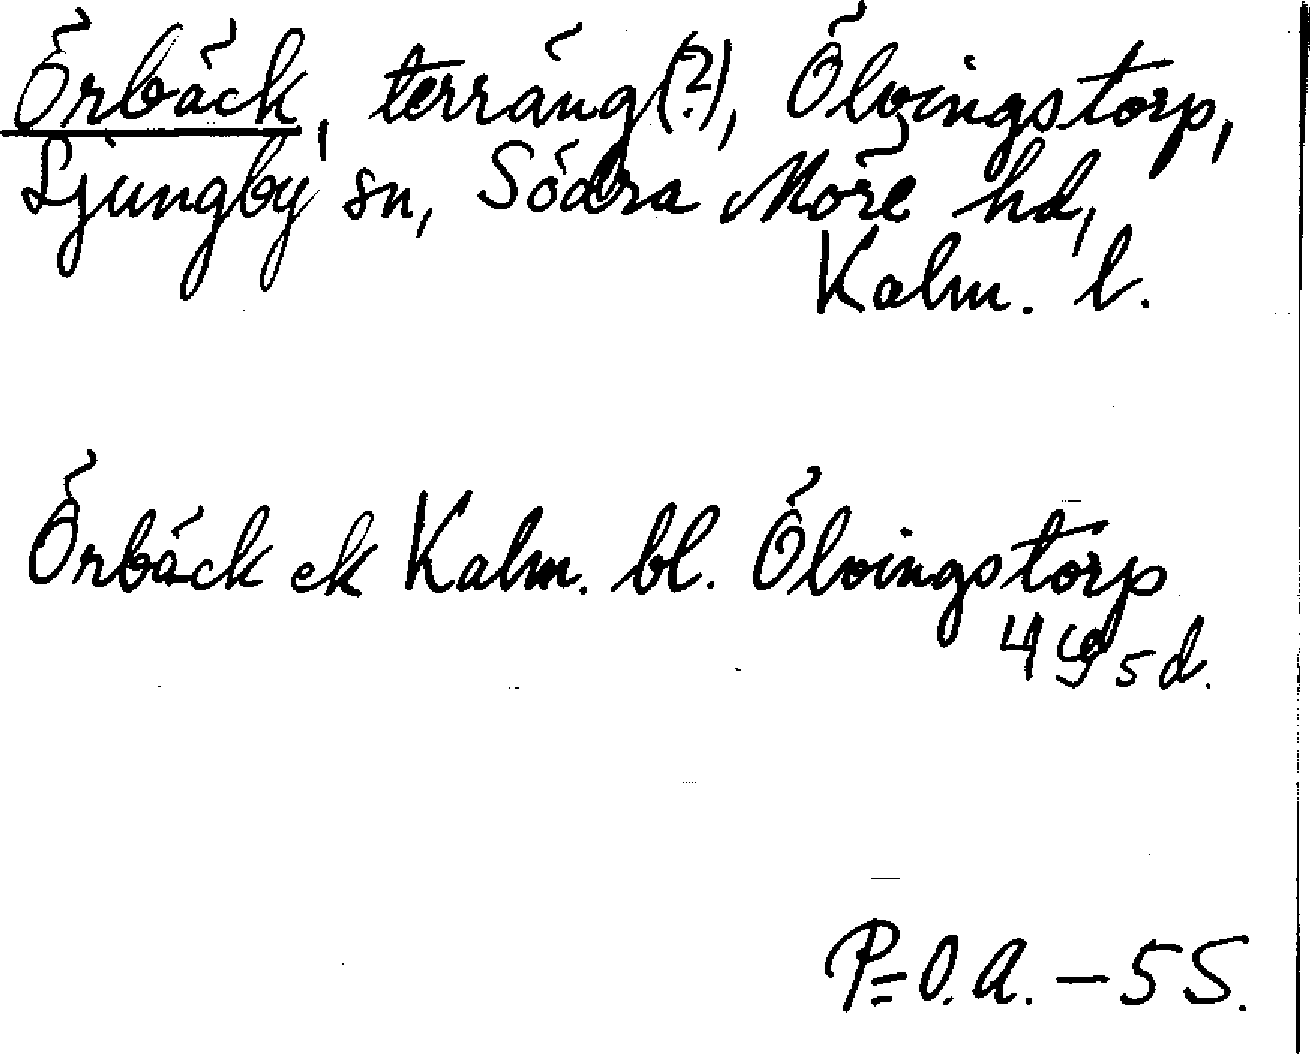 Örbäck, terräng(?), Ölvingstorp,
Ljungby sn, Södra Möre hd,
Kalm. l.
Örbäck ek Kalm. bl. Ölvingstorp
4 g 5 d.
P=O.A. – 55.